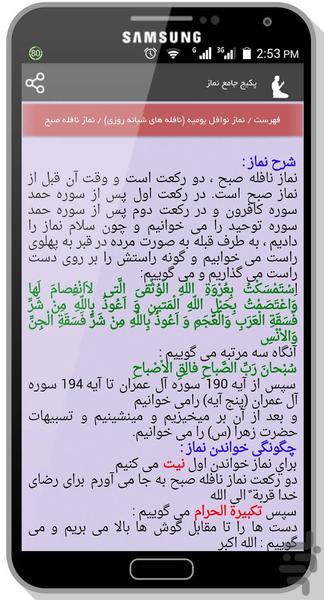 SAMSUNG
80
G
3G
2:53 PM
پکیج جامع نماز
فهرست / نماز نوافل یومیه (نافله های شبانه روزی) / نماز نافله صبح
شرح نماز :
نماز نافله صبح ، دو رکعت است و وقت آن قبل از
نماز صبح است. در رکعت اول پس از سوره حمد
سوره کافرون و در رکعت دوم پس از سوره حمد
سوره توحید را می خوانیم و چون سلام نماز را
دادیم ، به طرف قبله به صورت مرده در قبر به پهلوی
راست می خوابیم و گونه راستش را بر روی دست
راست می گذاریم و می گوییم:
اِسْتَمْسَكْتُ بِعُرْوَةِ اللَّهِ الْوُثْقَى الَّتِى لاَانْفِصامَ لَها
وَاعْتَصَمْتُ بِحَبْلِ اللَّهِ الْمَتينِ وَ اَعُوذُ بِاللَّهِ مِنْ شَرِّ
فَسَقَةِ الْعَرَبِ وَالْعَجَمِ وَ اَعُوذُ بِاللَّهِ مِنْ شَرِّ فَسَقَةِ الْجِنِّ
وَالاِنْسِ
آنگاه سه مرتبه می گوییم :
سُبْحانَ رَبِّ الصَّباحِ فالِقِ الْاِصْباحِ
سپس از آیه 190 سوره آل عمران تا آیه 194 سوره
آل عمران (پنج آیه) رامی خوانیم
و بعد از آن بر میخیزیم و مینشینیم و تسبیحات
حضرت زهرا (س) را می خوانیم.
چگونگی خواندن نماز :
برای نماز خواندن اول نیت می کنیم
دو رکعت نماز نافله صبح به جا می آورم برای رضای
خدا قربة ً الی الله
سپس تکبیرة الحرام می گوییم :
دست ها را تا مقابل گوش ها بالا می بریم و می
گوییم : الله اکبر